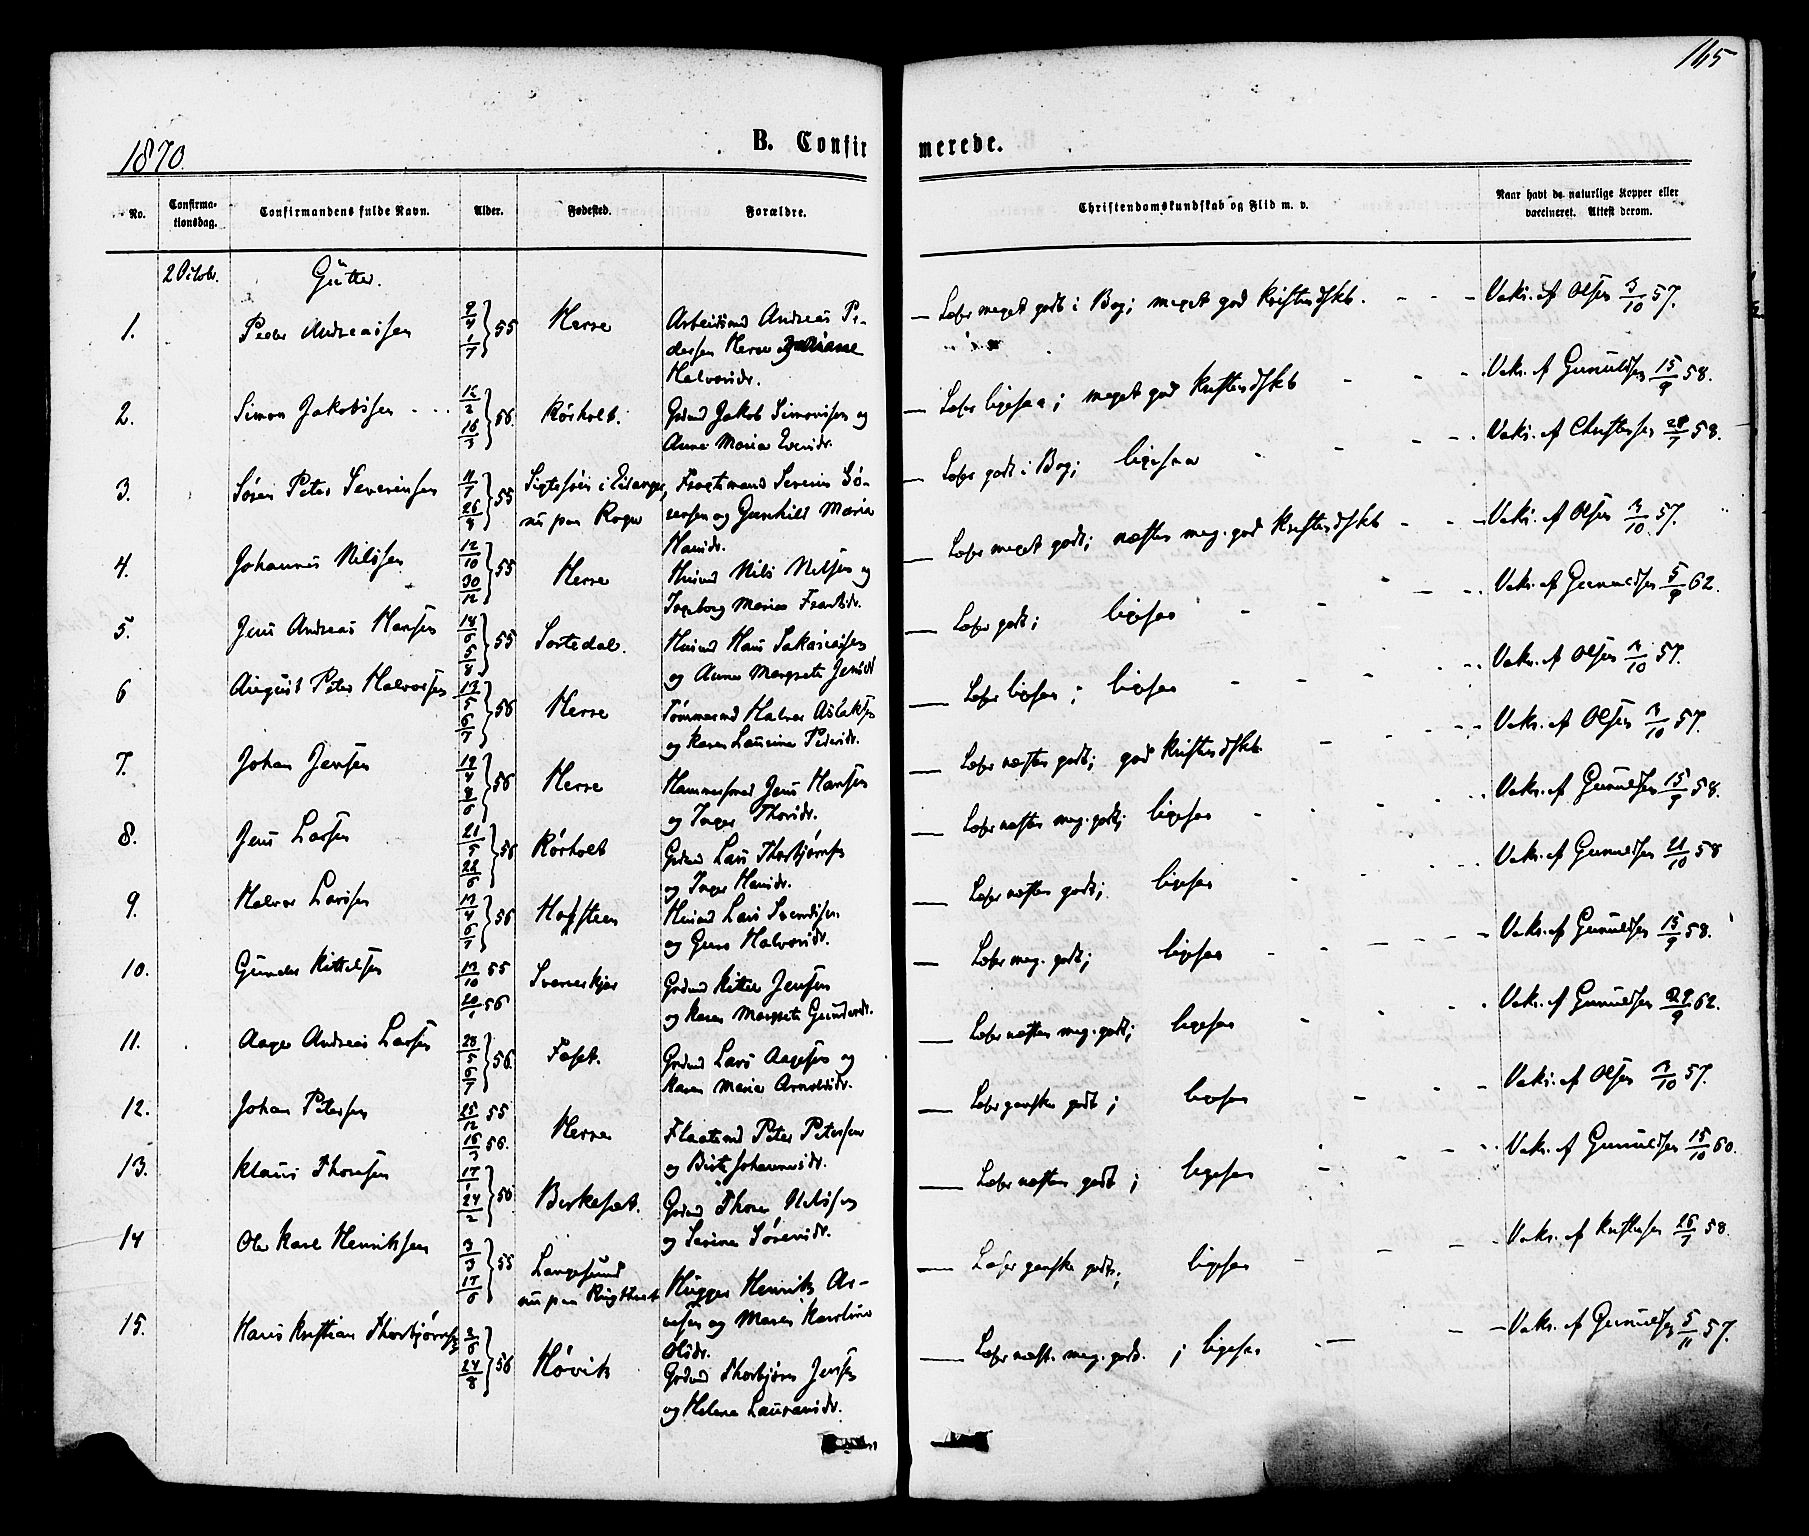 165
1870.
B. Confirmerede.
No.
Confirma-
tionsdag.
Confirmandens fulde Navn.
Alder.
Fødested.
Forældre.
Christendomskundskab og Flid m. v.
Naar havt de naturlige Kopper eller
vaccineret. Attest derom.
2 Octobr. Gutter.
1. Peder Andreassen 9/4 1/7 } 55 Herre Arbeidsmd Andreas Pe-
dersen Herre og
Halvorsdr.
— Læser meget godt i Bog; meget god Kristendskab. Vaks. af Olsen 3/10 57.
2. Simon Jakobssen 12/2 16/3 } 56. Rörholt. Grdmd Jakob Simonssen og
Anne Maria Evensdr.
— Læser ligesaa; meget god Kristendskb Vaks. af Gunuldsen 15/9 58.
3. Søren Peter Severinsen 11/7 26/8 } 55 i Eidanger, Fragtemand Severin Sö-
nu paa Rogn rensen og Gunhild Maria
Hansdr.
— Læser godt i Bog; ligesaa Vaks. af Christensen 28/7 58.
4. Johannes Nilssen 12/10 30/12 } 55 Herre Husmd Nils Nilssen og
Ingeborg Maria Frantsdr.
— Læser meget godt; næsten meg. god Kristendskb Vaks. af Olsen 3/10 57.
5. Jens Andreas Hansen 18/6 5/8 } 55 Sortedal. Husmd Hans Sakariassen
og Anne Margrete Jensdr
— Læser godt; ligesaa Vaks. af Gunuldsen 5/9 62.
6 August Peter Halvorsen 13/5 6/7 } 56 Herre Tömmermd Halvor Aslaksen
og Karen Laurine Pedersdr.
— Læser ligesaa; ligesaa Vaks. af Olsen 3/10 57.
7. Johan Jensen 19/4 8/6 } 56 Herre Hammersmed Jens Hansen
og Inger Thorsdr.
— Læser næsten godt; god Kristendskb Vaks. af Olsen 3/10 57.
8. Jens Larsen 21/5 22/6 } 56 Rörholt Grdmd Lars Thorbjørnsen
og Inger Hansdr.
— Læser næsten meg. godt; ligesaa Vaks. af Gunuldsen 15/9 58.
9. Halvor Larssen 13/4 6/7 } 56 Hafsteen Husmd Lars Svendssen
og Guro Halvorsdr.
— Læser næsten godt; ligesaa Vaks. af Gunuldsen 21/10 58
10. Gunder Kittelsen 13/10 55 20/1 56 Sverveskjær Grdmd Kittil Jensen
og Karen Margrete Gundersdr.
— Læser meg. godt; ligesaa Vaks. af Gunuldsen 15/9 58.
11. Aage Andreas Larsen 28/5 6/7 } 56. Foset. Grdmd Lars Aagesen og
Karen Maria Arnoldsdr.
— Læser næsten meg. godt; ligesaa Vaks. af Gunuldsen 29/9 62.
12. Johan Petersen 25/12 55 16/3 56. Herre Flaatemd Peter Petersen
og Birte Johannesdr.
— Læser ganske godt; ligesaa Vaks. af Olsen 3/10 57.
13. Klaus Thorsen 17/1 24/2 } 56 Birkesæt. Grdmd Thore Nilssen
og Serine Sørensdr.
— Læser næsten godt; ligesaa Vaks. af Gunuldsen 15/10 60.
14 Ole Karl Henriksen 3/3 17/6 } 55 Langesund Hugger Henrik Ar-
nu paa nesen og Maren Karoline
Olsdr.
— Læser ganske godt; ligesaa Vaks. af Kristensen 26/7 58.
15. Hans Kristian Thorbjørnsen 2/6 24/8 } 56 Hövik Grdmd Thorbjörn Jensen
og Helene Lauransdr.
— Læser næst. meg. godt; ligesaa Vaks. af Gunuldsen 5/11 57.